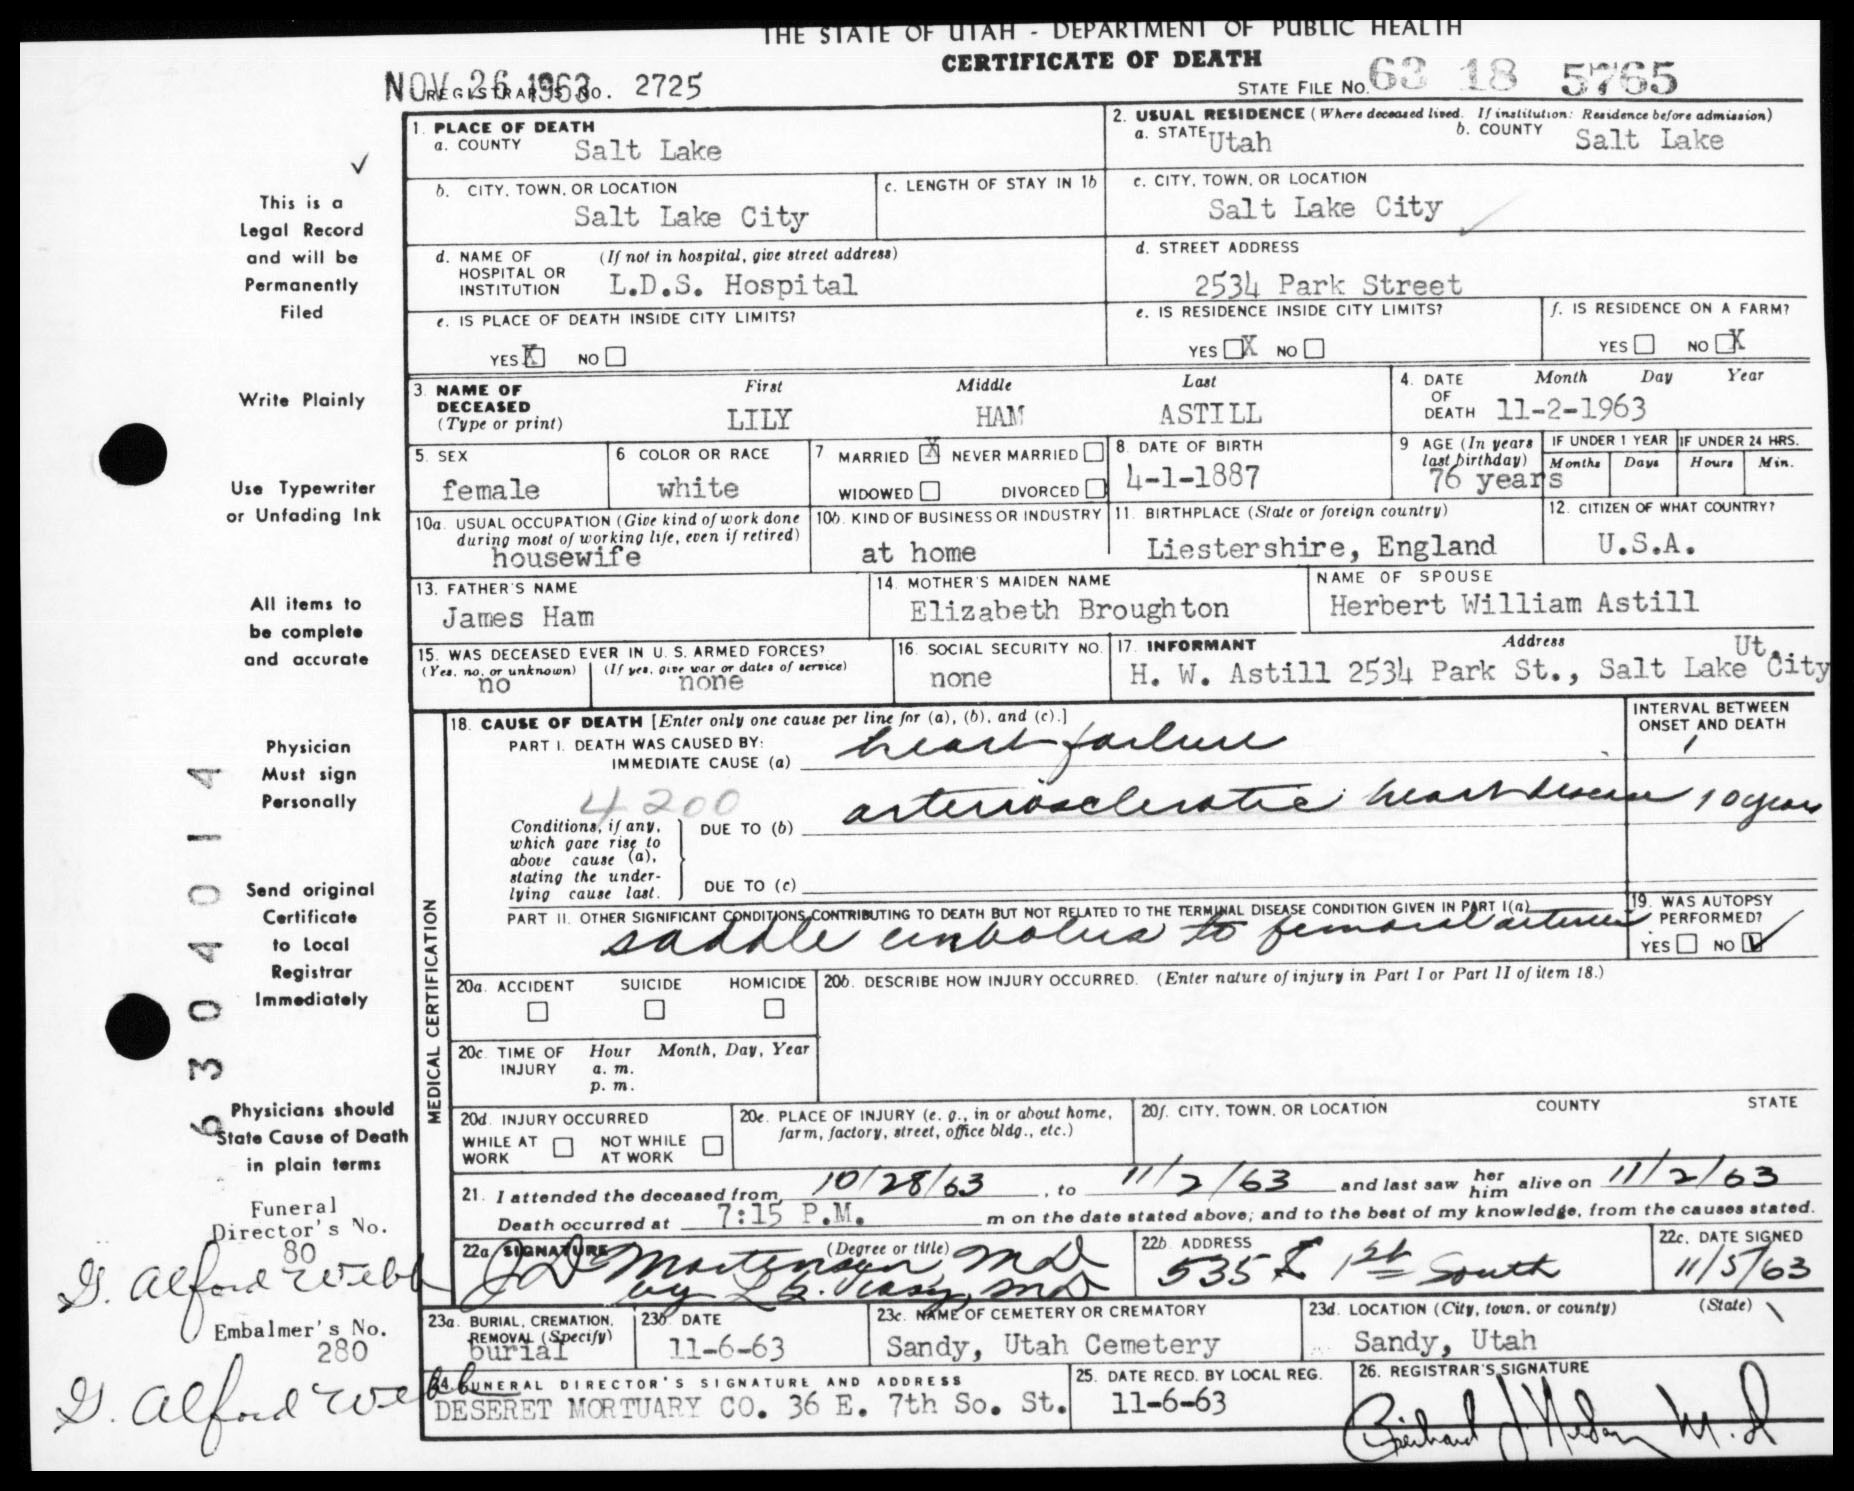 THE STATE OF UTAH - DEPARTMENT OF PUBLIC HEALTH
CERTIFICATE OF DEATH
NOV 26 1963
REGISTRAR'S NO. 2725
STATE FILE NO. 63 18 5765
1. PLACE OF DEATH
a. COUNTY Salt Lake
2. USUAL RESIDENCE (Where deceased lived. If institution: Residence before admission)
a. STATE Utah b. COUNTY Salt Lake
b. CITY, TOWN, OR LOCATION Salt Lake City
c. LENGTH OF STAY IN 1b
c. CITY, TOWN, OR LOCATION
Salt Lake City
d. NAME OF HOSPITAL OR INSTITUTION (If not in hospital, give street address)
L.D.S. Hospital
d. STREET ADDRESS
2534 Park Street
e. IS PLACE OF DEATH INSIDE CITY LIMITS?
YES X NO
e. IS RESIDENCE INSIDE CITY LIMITS?
YES X NO
f. IS RESIDENCE ON A FARM?
YES NO X
3. NAME OF DECEASED (Type or print)
First Middle Last
LILY HAM ASTILL
4. DATE OF DEATH Month Day Year
11-2-1963
5. SEX
female
6 COLOR OR RACE
white
7 MARRIED X NEVER MARRIED
WIDOWED DIVORCED
8. DATE OF BIRTH
4-1-1887
9 AGE (In years last birthday)
76 years
IF UNDER 1 YEAR
Months Days
IF UNDER 24 HRS.
Hours Min.
10a. USUAL OCCUPATION (Give kind of work done during most of working life, even if retired)
housewife
10b. KIND OF BUSINESS OR INDUSTRY
at home
11. BIRTHPLACE (State or foreign country)
Liestershire, England
12. CITIZEN OF WHAT COUNTRY?
U.S.A.
13. FATHER'S NAME
James Ham
14. MOTHER'S MAIDEN NAME
Elizabeth Broughton
NAME OF SPOUSE
Herbert William Astill
15. WAS DECEASED EVER IN U. S. ARMED FORCES?
(Yes, no, or unknown) (If yes, give war or dates of service)
no none
16. SOCIAL SECURITY NO.
none
17. INFORMANT Address
H. W. Astill 2534 Park St., Salt Lake City Ut.
18. CAUSE OF DEATH [Enter only one cause per line for (a), (b), and (c).]
INTERVAL BETWEEN ONSET AND DEATH
PART I. DEATH WAS CAUSED BY:
IMMEDIATE CAUSE (a) heart failure
4200
Conditions, if any, which gave rise to above cause (a), stating the underlying cause last.
DUE TO (b) arteriosclerotic heart disease 10 years
DUE TO (c)
PART II. OTHER SIGNIFICANT CONDITIONS CONTRIBUTING TO DEATH BUT NOT RELATED TO THE TERMINAL DISEASE CONDITION GIVEN IN PART I(a)
saddle embolus to femoral arteries
19. WAS AUTOPSY PERFORMED?
YES NO
MEDICAL CERTIFICATION
20a. ACCIDENT SUICIDE HOMICIDE
20b. DESCRIBE HOW INJURY OCCURRED. (Enter nature of injury in Part I or Part II of item 18.)
20c. TIME OF INJURY Hour Month, Day, Year
a. m.
p. m.
20d. INJURY OCCURRED
WHILE AT WORK NOT WHILE AT WORK
20e. PLACE OF INJURY (e. g., in or about home, farm, factory, street, office bldg., etc.)
20f. CITY, TOWN, OR LOCATION COUNTY STATE
21. I attended the deceased from 10/28/63, to 11/2/63 and last saw her him alive on 11/2/63
Death occurred at 7:15 P.M. m on the date stated above; and to the best of my knowledge, from the causes stated.
22a. SIGNATURE (Degree or title)
J D Mortenson MD
by
22b. ADDRESS
535 E 1st South
22c. DATE SIGNED
11/5/63
23a. BURIAL, CREMATION, REMOVAL (Specify)
burial
23b. DATE
11-6-63
23c. NAME OF CEMETERY OR CREMATORY
Sandy, Utah Cemetery
23d. LOCATION (City, town, or county) (State)
Sandy, Utah
24. FUNERAL DIRECTOR'S SIGNATURE AND ADDRESS
DESERET MORTUARY CO. 36 E. 7th So. St.
25. DATE RECD. BY LOCAL REG.
11-6-63
26. REGISTRAR'S SIGNATURE
M.D
This is a
Legal Record
and will be
Permanently
Filed
Write Plainly
Use Typewriter
or Unfading Ink
All items to
be complete
and accurate
Physician
Must sign
Personally
Send original
Certificate
to Local
Registrar
Immediately
Physicians should
State Cause of Death
in plain terms
6304014
Funeral
Director's No.
80
G. Alford Webb
Embalmer's No.
280
G. Alford Webb